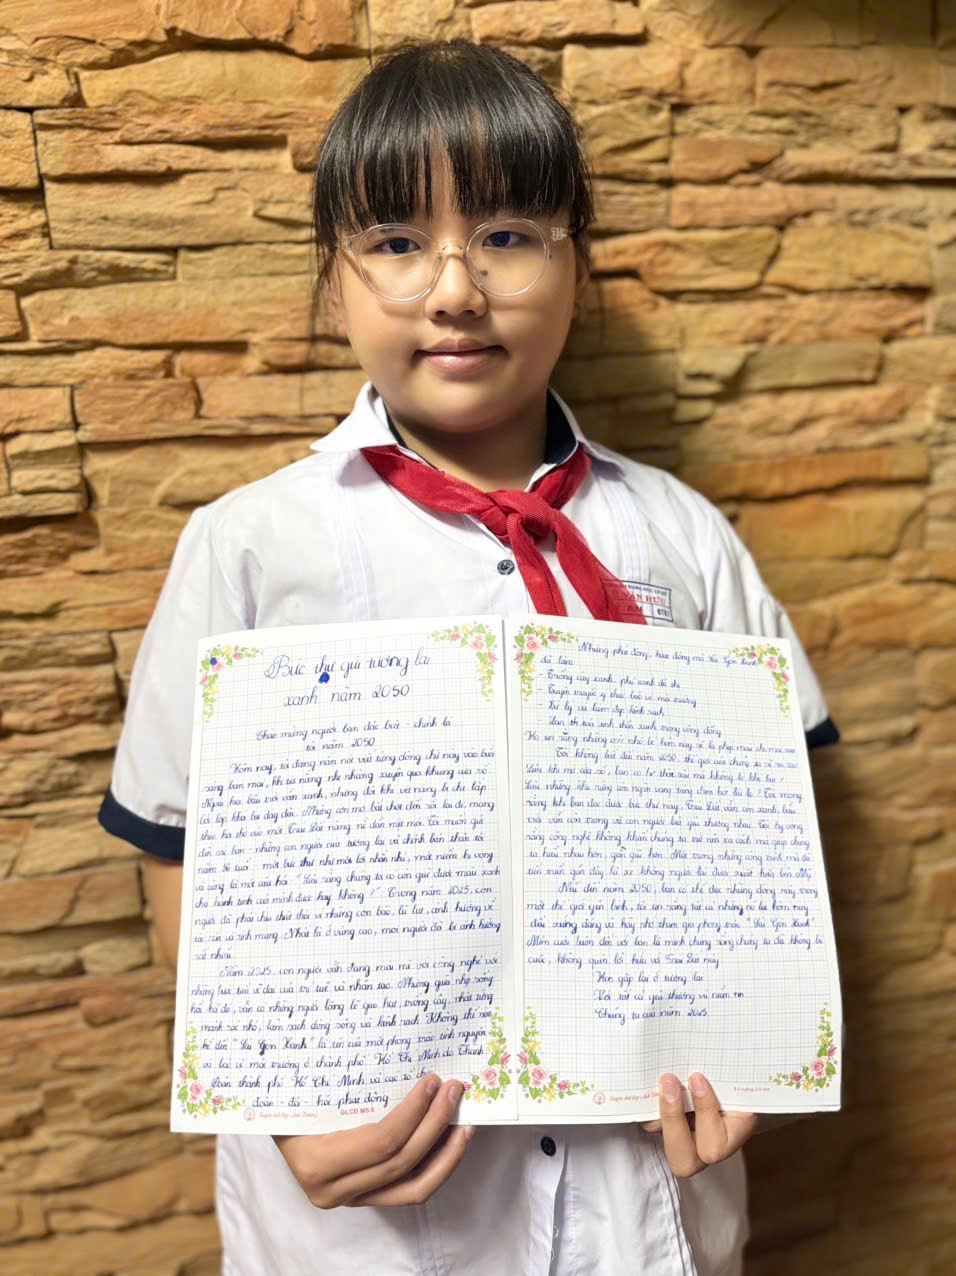 Bức thư gửi tương lai
xanh năm 2050
Chào mừng người bạn đặc biệt - chính là
tôi năm 2050
Hôm nay, tôi đang nắn nót viết từng dòng chữ này vào buổi
sáng ban mai, khi tia nắng nhẹ nhàng xuyên qua khung cửa sổ
Ngoài kia bầu trời vẫn xanh, nhưng đôi khi vẻ nắng bị che lấp
bởi lớp khói bụi dày đặc. Những cơn mơ bất chợt đến rồi lại đi, mang
theo hơi thở của một Trái Đất nóng nỉ dần mệt mỏi. Tôi muốn gửi
đến các bạn - những con người của tương lai và chính bản thân tôi
năm 36 tuổi một bức thư như một lời nhắn nhủ, một niềm hi vọng
và cũng là một câu hỏi: " Liệu rằng chúng ta có còn giữ được màu xanh
cho hành tinh của mình được hay không? " Trong năm 2025, con
người đã phải chịu thiệt thòi vì những cơn bão, lũ lụt, ảnh hưởng về
tài sản và tính mạng. Nhất là ở vùng cao, mọi người đã bị ảnh hưởng
rất nhiều.
Năm 2025, con người vẫn đang mải mê với công nghệ với
những bước tiến vĩ đại của trí tuệ và nhân tạo. Nhưng giữa nhịp sống
hối hả đó, vẫn có những người lặng lẽ gieo hạt, trồng cây, nhặt từng
mảnh rác nhỏ, làm sạch dòng sông và kênh rạch. Không thể nào
kể đến "Sài Gòn Xanh" là tên của một phong trào tình nguyện
và bảo vệ môi trường ở thành phố Hồ Chí Minh do Thành
Đoàn thành phố Hồ Chí Minh và các tổ chức
đoàn - đội - hội phát động
GLCD M5.5
Những phát động, hoạt động mà Sài Gòn Xanh
đã làm
- Trồng cây xanh, phủ xanh đô thị
- Tuyên truyền ý thức bảo vệ môi trường
- Xử lý và làm đẹp kênh rạch
Lan tỏa tinh thần xanh trong cộng đồng
Tôi không biết đến năm 2050, thế giới của chúng ta sẽ ra sao
Liệu khi mở cửa sổ, bạn có hít thật sâu mà không lo khói bụi?
rằng khi bạn đọc được bức thư này, Trái Đất vẫn còn xanh, bầu
trời vẫn còn trong và con người biết yêu thương nhau. Tôi hy vọng
rằng công nghệ không khiến chúng ta trở nên xa cách mà giúp chúng
ta hiểu nhau hơn, gần gũi hơn. Một trong những công trình mà đã
tiên triển gần đây là xe không người lái được xuất hiện bên Mỹ
Nếu đến năm 2050, bạn có thể đọc những dòng này trong
một thế giới yên bình, tôi tin rằng tất cả những nỗ lực hôm nay
đều xứng đáng và hãy nhớ tham gia phong trào "Sài Gòn Xanh"
Mỉm cười luôn đến với bạn là minh chứng rằng chúng ta đã không bỏ
cuộc, không quên lời hứa với Trái Đất này
Hẹn gặp lại ở tương lai
Với tất cả yêu thương và niềm tin
Chúng ta của năm 2025